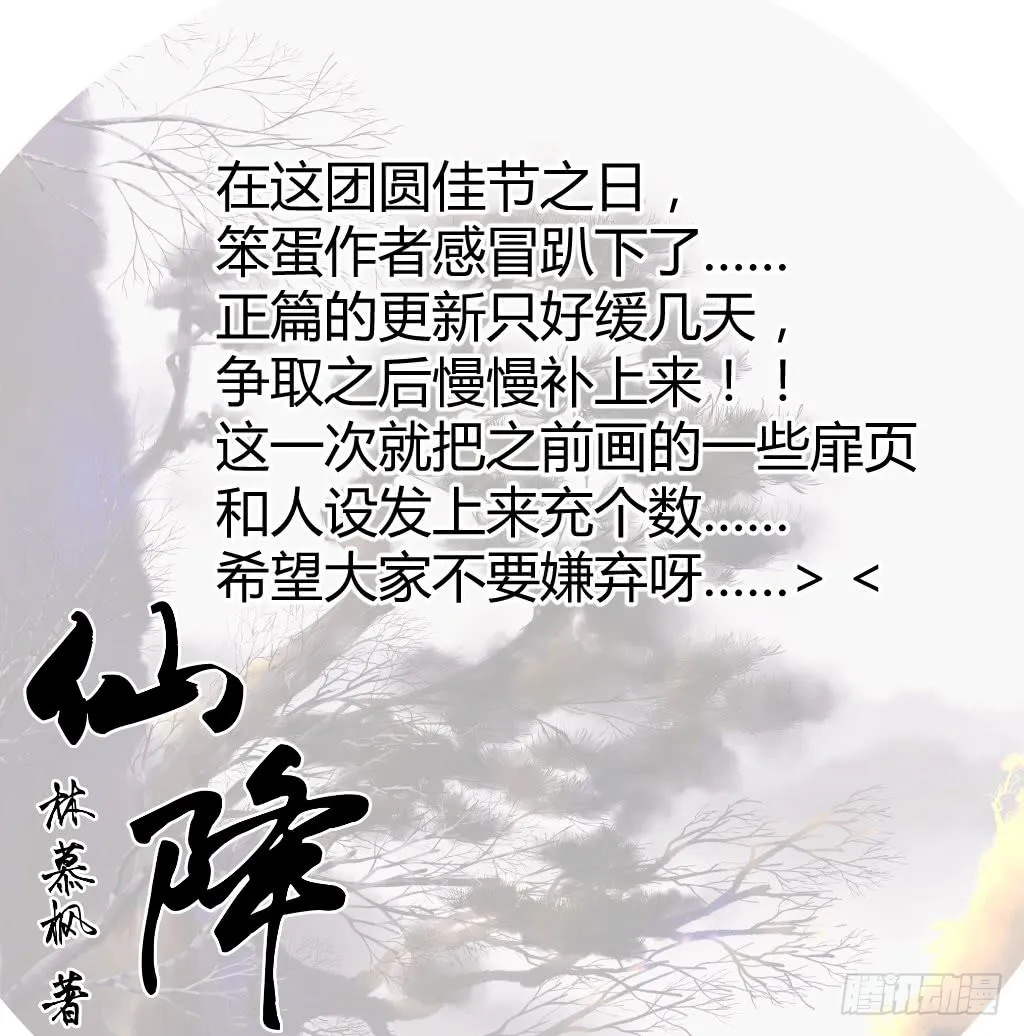 在这团圆佳节之日，
笨蛋作者感冒趴下了……
正篇的更新只好缓几天，
争取之后慢慢补上来！！
这一次就把之前画的一些扉页
和人设发上来充个数……
希望大家不要嫌弃呀……> <
仙降
林慕枫 著
腾讯动漫